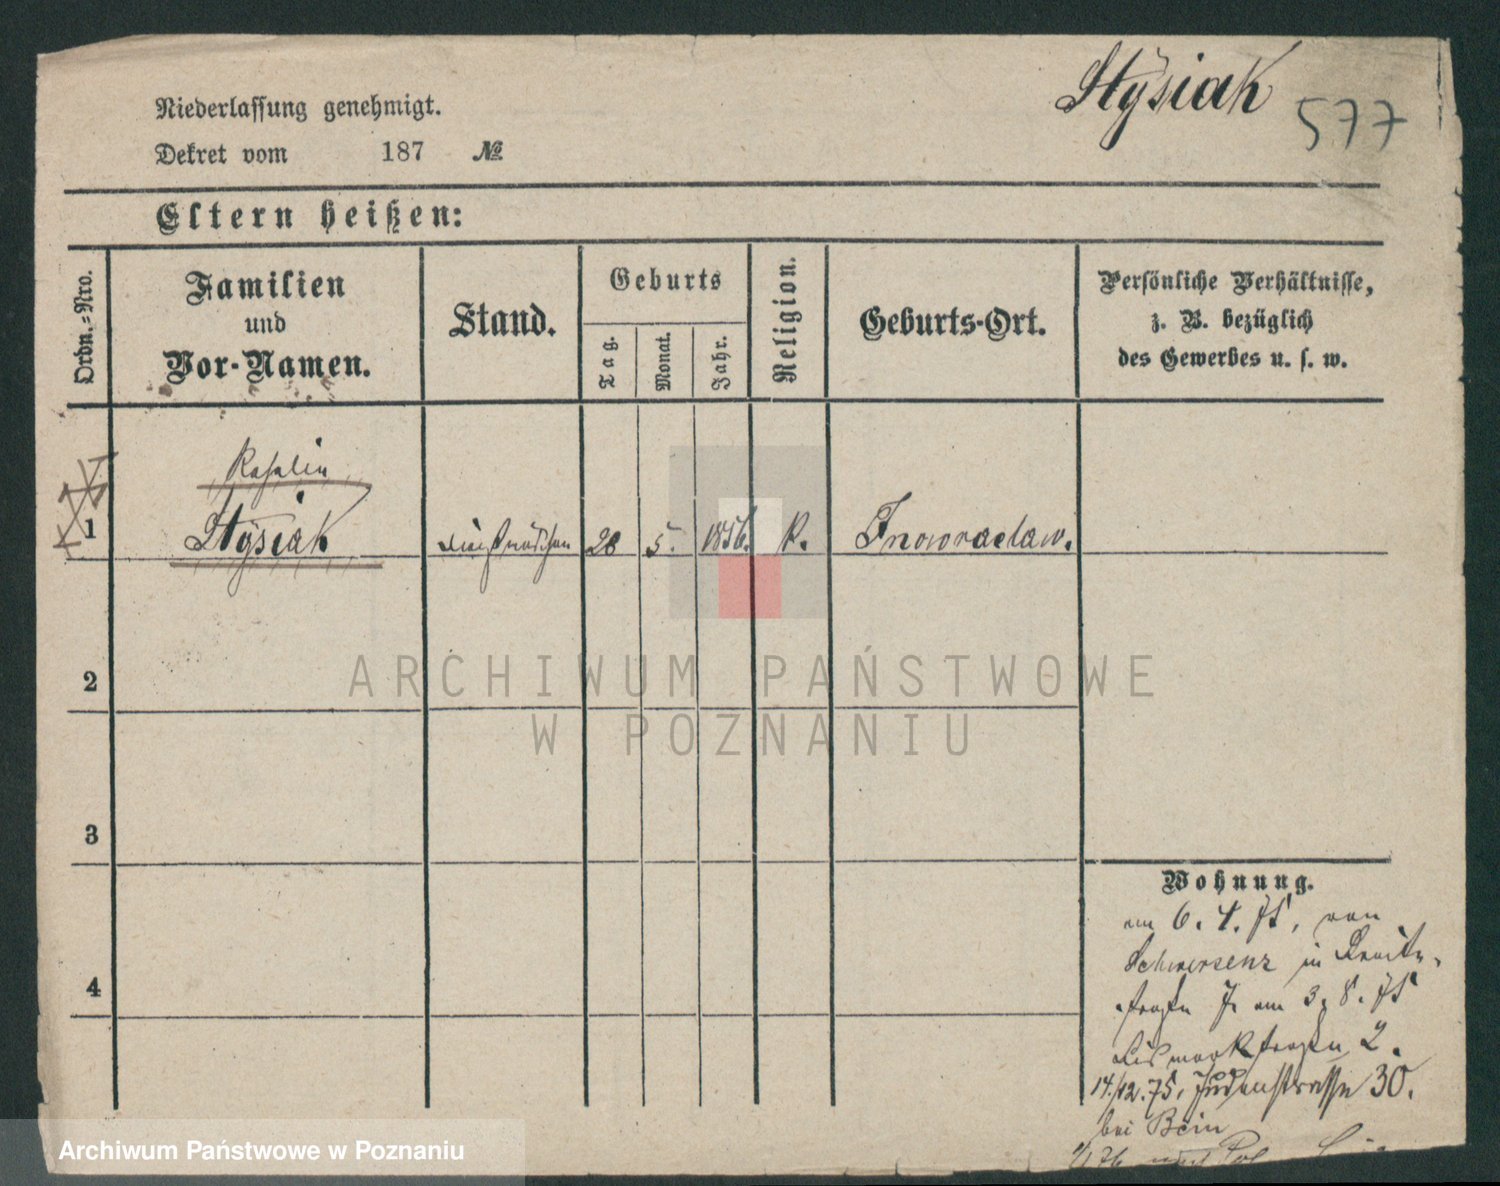 Stÿsiak 577
Niederlassung genehmigt.
Dekret vom 187 №
Eltern heißen:
Ordn.-Nro.
Familien
und
Vor-Namen.
Stand.
Geburts
Tag.
Monat.
Jahr.
Religion.
Geburts-Ort.
Persönliche Verhältnisse,
z. B. bezüglich
des Gewerbes u. s. w.
Rosalie
1 Stÿsiak Dienstmädchen 28 5. 1856. K. Inowraclaw.
2
3
4
Wohnung.
am 6. 4. 75, von
Schwersenz in Breite-
straße 7. am 3. 8. 75
2.
14./12.75. Judenstrasse 30.
bei Bein
ARCHIWUM PAŃSTWOWE
W POZNANIU
Archiwum Państwowe w Poznaniu